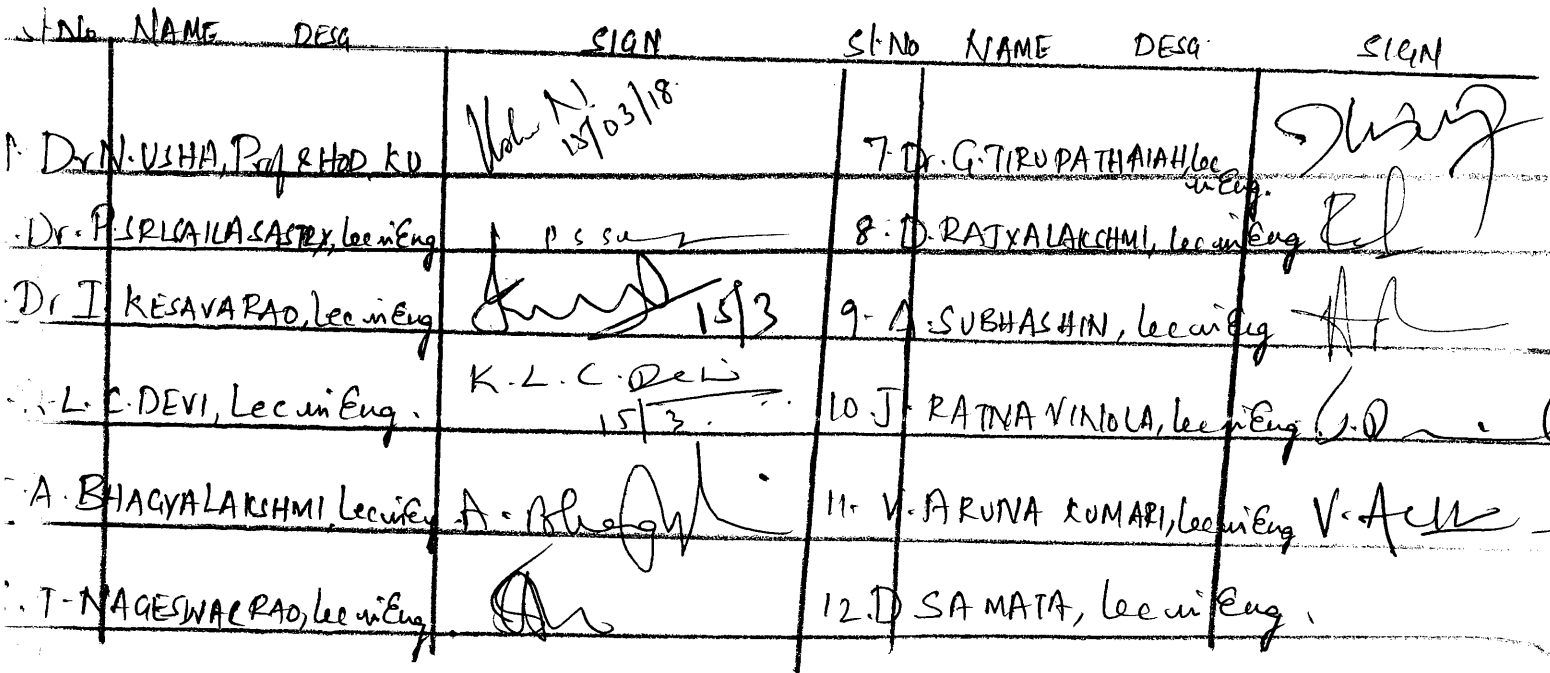 Sl.No NAME DESG SIGN Sl.No NAME DESG SIGN
1. Dr N. USHA, Prof & HOD, KU Usha N. 15/03/18 7. Dr. G. TIRUPATHAIAH Lec in Eng.
Dr. P. SRISAILA SASTRY, Lec in Eng 8. D. RAJYALAKSHMI, Lec in Eng
Dr I KESAVARAO, Lec in Eng 15/3 9. A. SUBHASHIN, Lec in Eng
K.L.C. DEVI, Lec in Eng. K.L.C. Devi 15/3. 10. J. RATNA VIMOLA, Lec in Eng
A. BHAGYALAKSHMI Lec in Eng 11. V. ARUNA KUMARI, Lec in Eng
T. NAGESWAR RAO, Lec in Eng 12. D SAMATA, Lec in Eng.